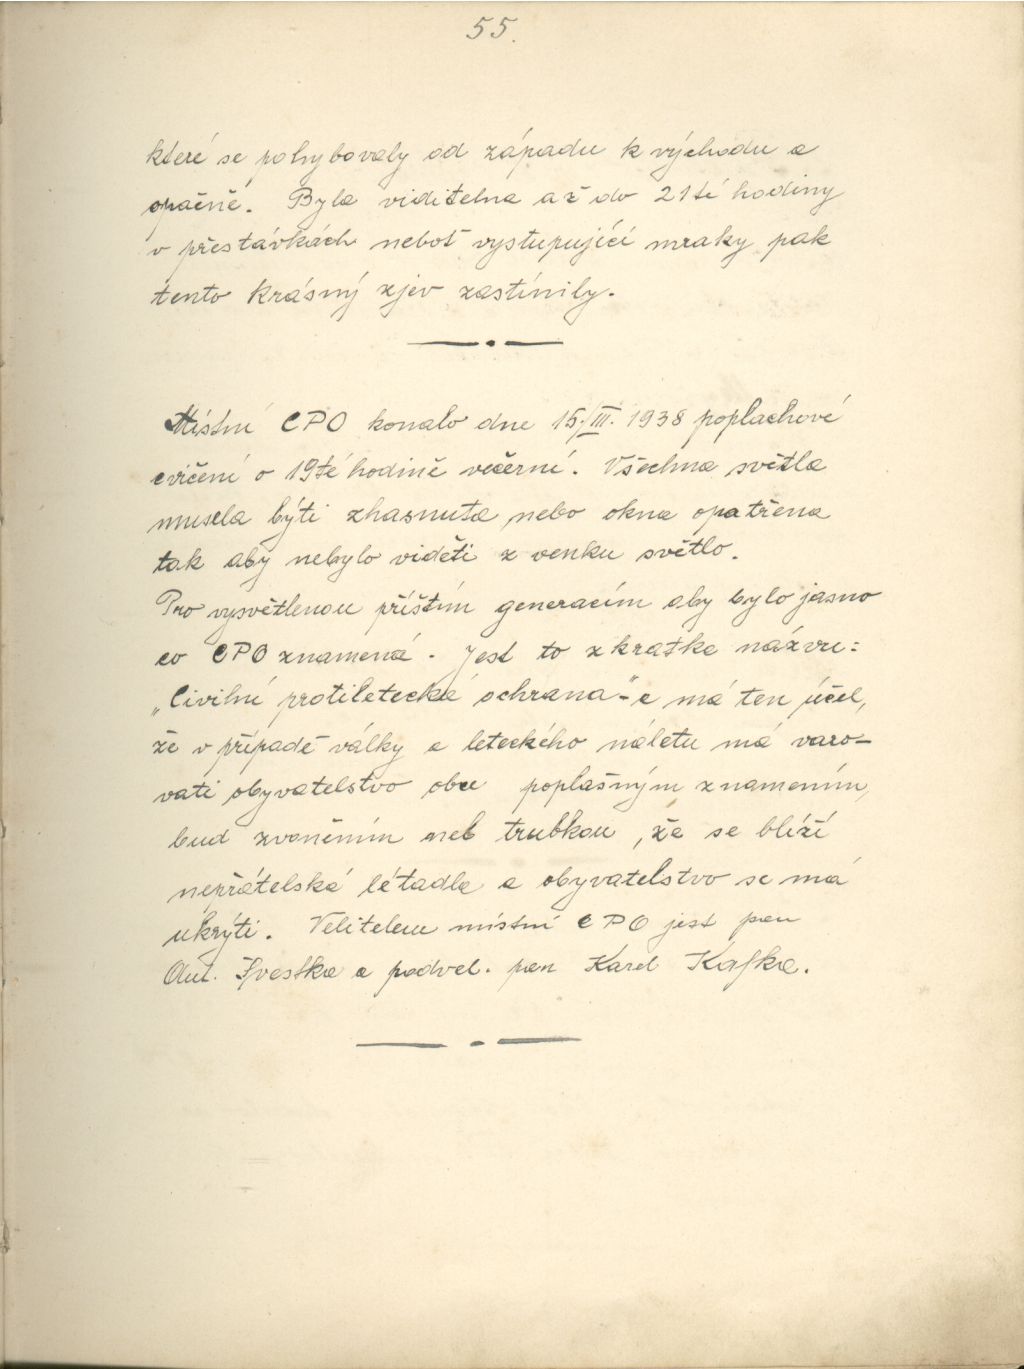 55.
které se pohybovaly od západu k východu a
opačně. Byla viditelna až do 21té hodiny
v přestávkách neboť vystupující mraky pak
tento krásný zjev zastínily.
Místní CPO konalo dne 15./III. 1938 poplachové
cvičení o 19té hodině večerní. Všechna světla
musela býti zhasnuta nebo okna opatřena
tak aby nebylo viděti z venku světlo.
Pro vysvětlenou příštím generacím aby bylo jasno
co CPO znamená. Jest to zkratka názvu:
„Civilní protiletecká ochrana" a má ten účel,
že v případě války a leteckého náletu má varo-
vati obyvatelstvo obce poplašným znamením,
buď zvoněním neb trubkou, že se blíží
nepřátelská létadla a obyvatelstvo se má
úkrýti. Velitelem místní CPO jest pan
Ant. Švestka a podvel. pan Karel Kafka.